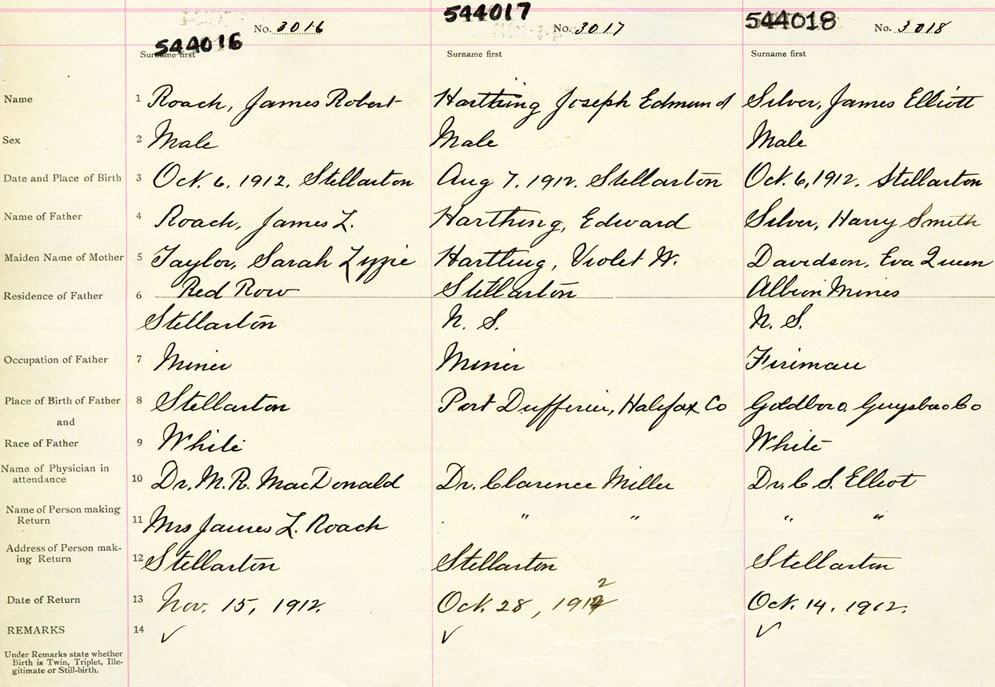 544016 544017 544018
No. 3016 No. 3017 No. 3018
Surname first Surname first Surname first
Name 1 Roach, James Robert Harthing Joseph Edmund Silver, James Elliott
Sex 2 Male Male Male
Date and Place of Birth 3 Oct. 6, 1912. Stellarton Aug 7. 1912. Stellarton Oct. 6, 1912. Stellarton
Name of Father 4 Roach, James L. Harthing, Edward Silver, Harry Smith
Maiden Name of Mother 5 Taylor, Sarah Lyzzie Hartling, Violet W. Davidson, Eva Queen
Residence of Father 6 Red Row Stellarton Albion Mines
Stellarton N. S. N. S.
Occupation of Father 7 Miner Miner Fireman
Place of Birth of Father 8 Stellarton Port Dufferin, Halifax Co Goldboro, Guysboro Co
and
Race of Father 9 White White
Name of Physician in
attendance 10 Dr. M. R. MacDonald Dr. Clarence Miller Dr. C S. Elliot
Name of Person making
Return 11 Mrs James L. Roach " " " "
Address of Person mak-
ing Return 12 Stellarton Stellarton Stellarton
Date of Return 13 Nov. 15, 1912. Oct. 28, 1912 Oct. 14. 1912.
REMARKS 14 ✓ ✓ ✓
Under Remarks state whether
Birth is Twin, Triplet, Ille-
gitimate or Still-birth.